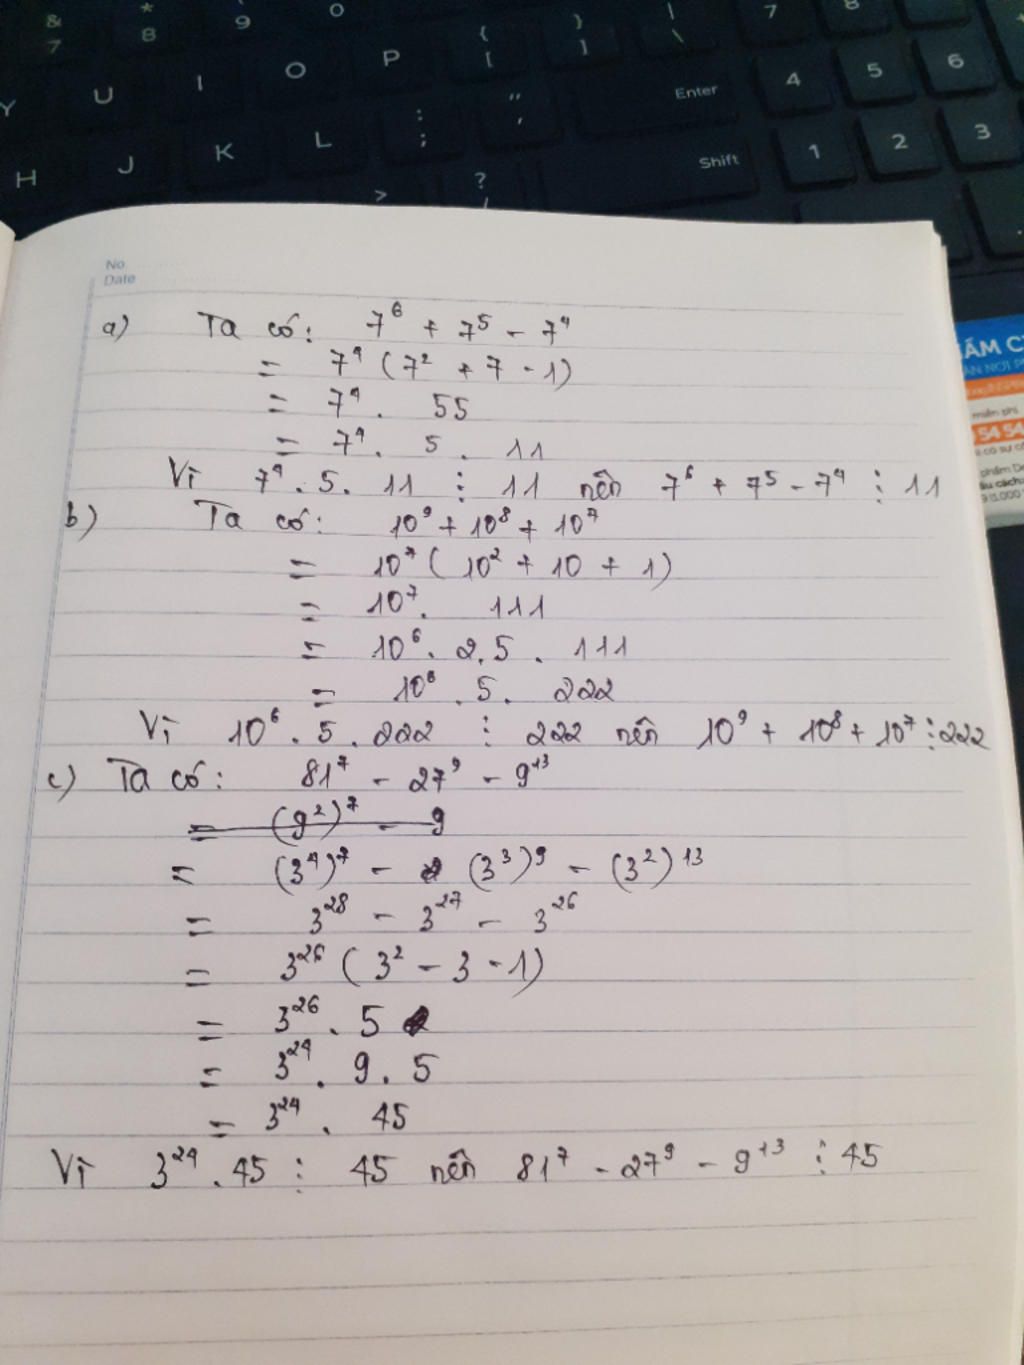 & * O
7 8 9
Y U I O P { [ } ] | \ 7 8
H J K L : ; " , Enter 4 5 6
> ? / Shift 1 2 3
No.
Date
a) Ta có: 7⁶ + 7⁵ - 7⁴
= 7⁴ (7² + 7 - 1)
= 7⁴ . 55
= 7⁴ . 5 . 11
Vì 7⁴ . 5 . 11 ⋮ 11 nên 7⁶ + 7⁵ - 7⁴ ⋮ 11
b) Ta có: 10⁹ + 10⁸ + 10⁷
= 10⁷ ( 10² + 10 + 1)
= 10⁷ . 111
= 10⁶ . 2.5 . 111
= 10⁶ . 5 . 222
Vì 10⁶ . 5 . 222 ⋮ 222 nên 10⁹ + 10⁸ + 10⁷ ⋮ 222
c) Ta có: 81⁷ - 27⁹ - 9¹³
= (9²)⁷ - 9
= (3⁴)⁷ - (3³)⁹ - (3²)¹³
= 3²⁸ - 3²⁷ - 3²⁶
= 3²⁶ (3² - 3 - 1)
= 3²⁶ . 5
= 3²⁴ . 9 . 5
= 3²⁴ . 45
Vì 3²⁴ . 45 ⋮ 45 nên 81⁷ - 27⁹ - 9¹³ ⋮ 45
miễn phí
54 54